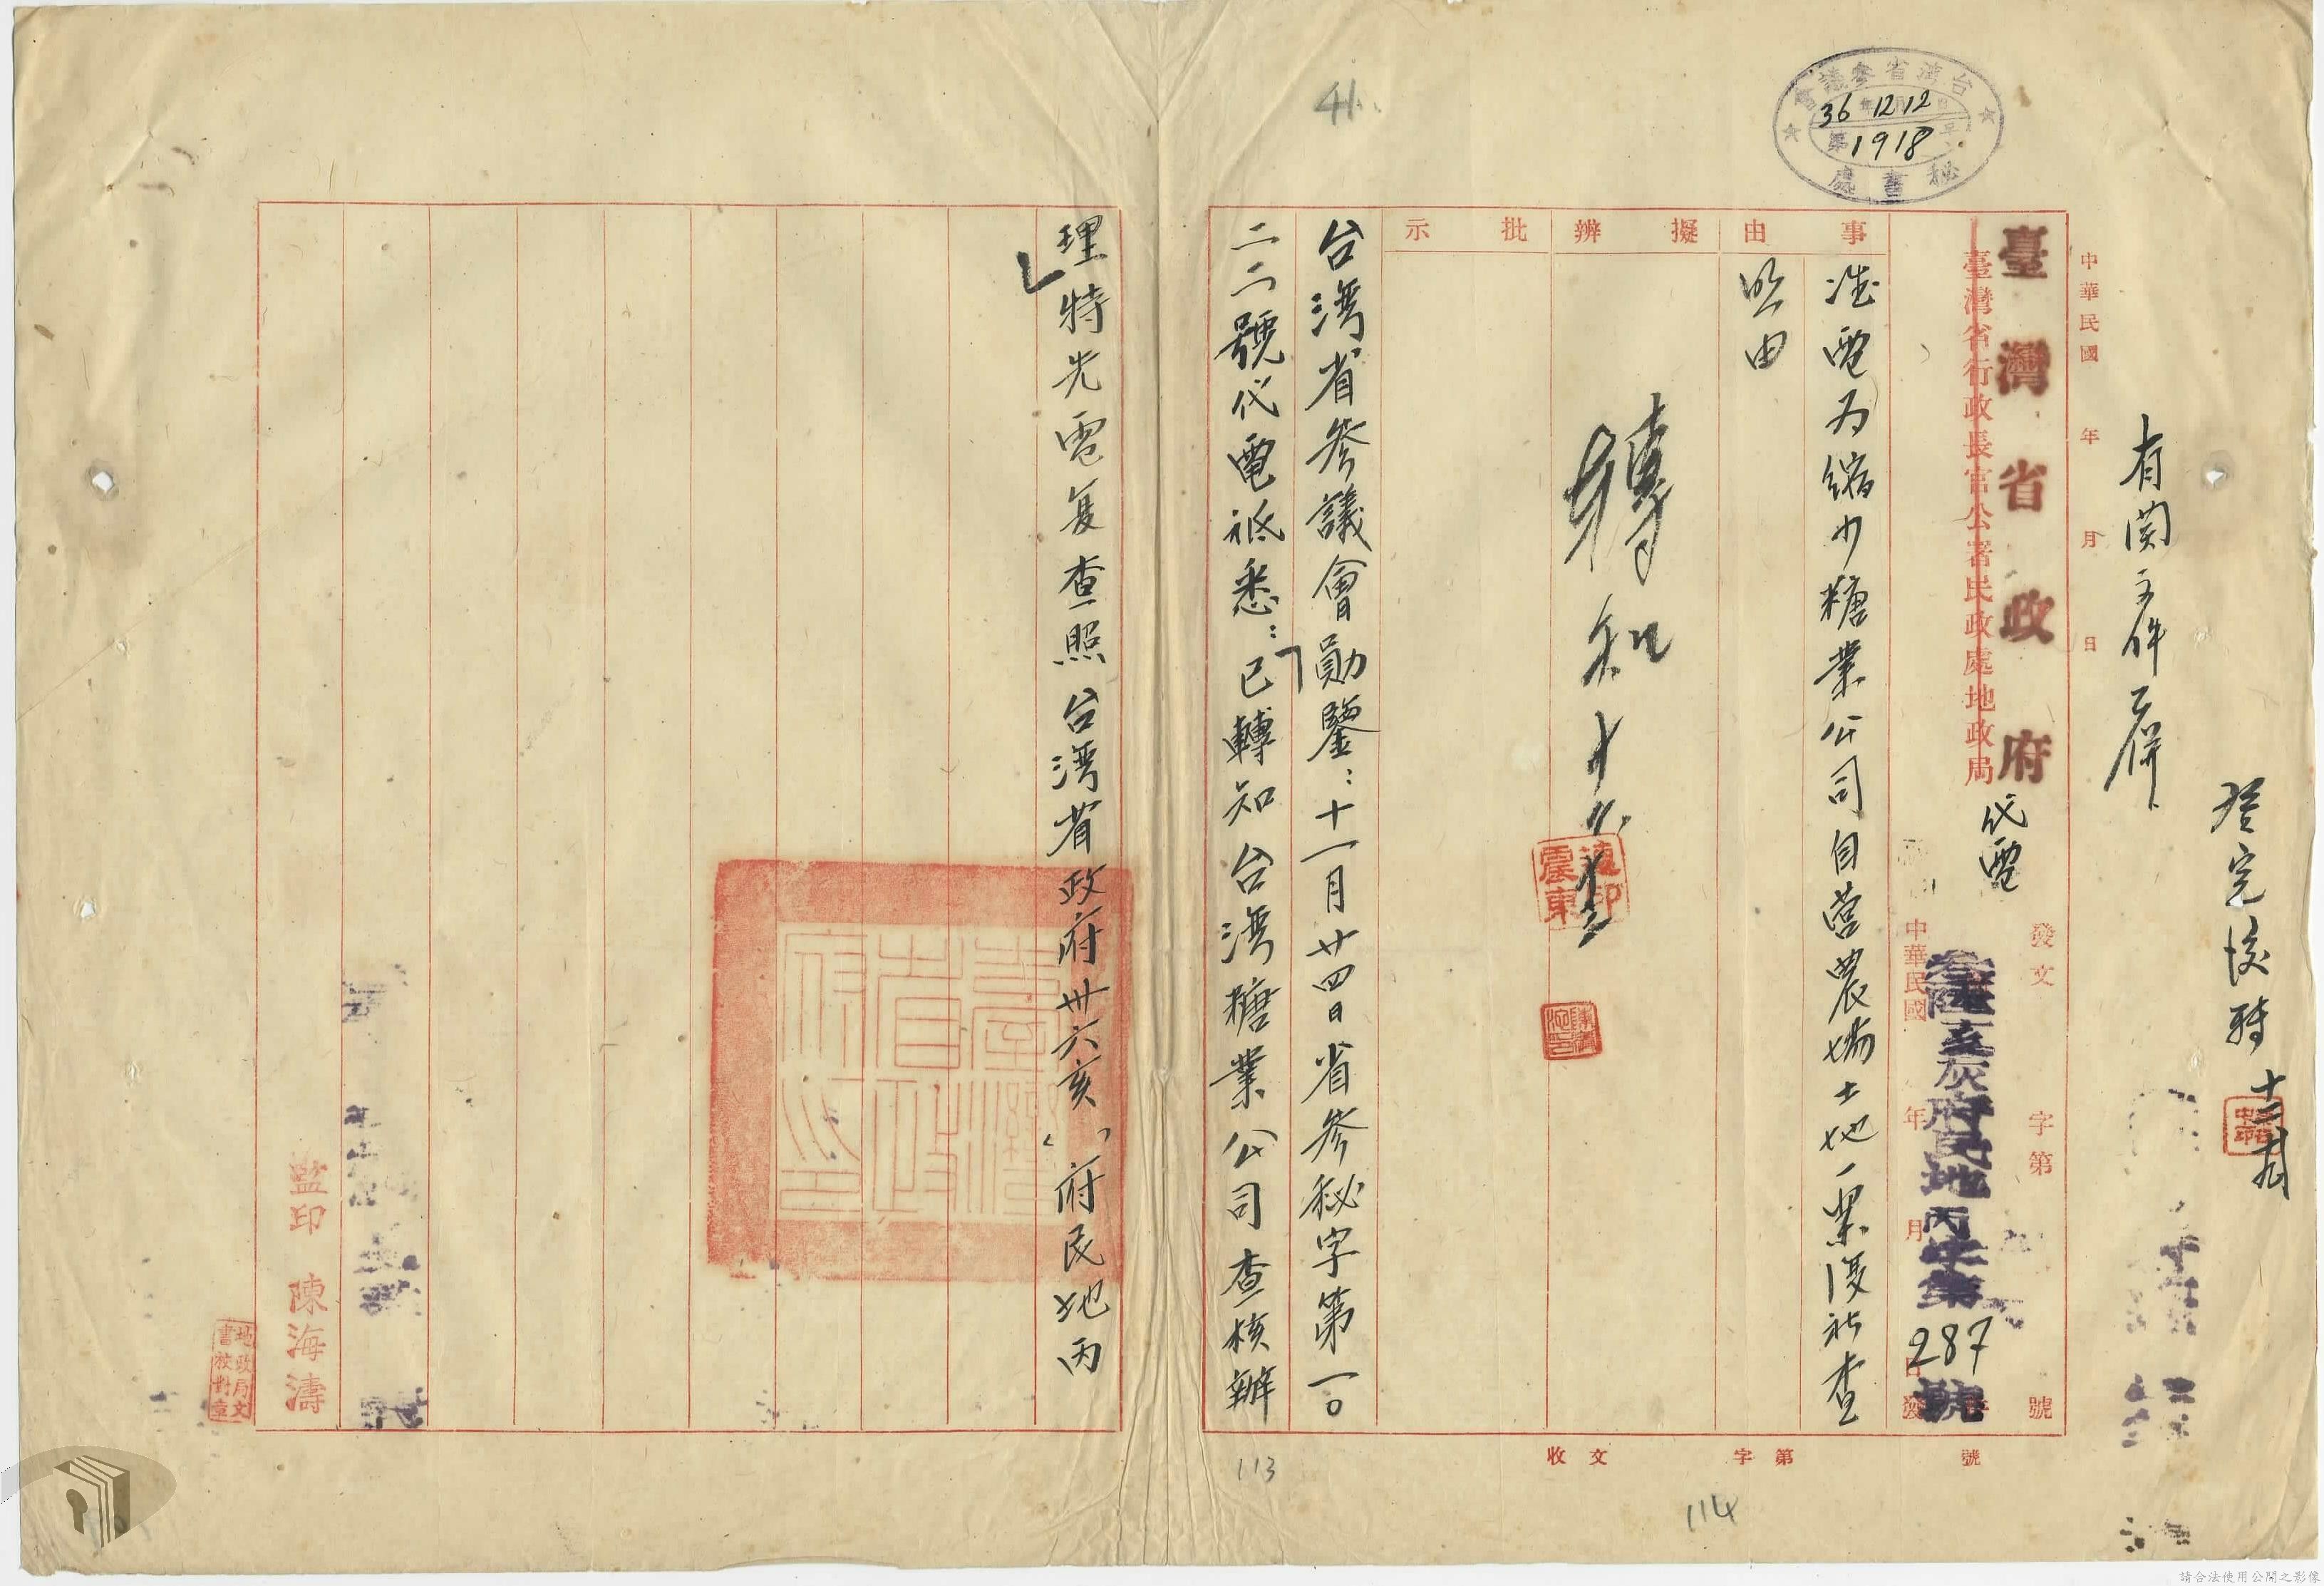 台灣省參議會
36年12月12日
第1918號
秘書處
41
登完後轉
有関文件併
中華民國 年 月 日
臺灣省政府代電
臺灣省行政長官公署民政處地政局
發文 字第 號
中華民國 年 月 日發
叁陸亥灰府民地丙字第287號
事由
准電为縮少糖業公司自营農場土地一案復請查
照由
擬辦
轉知
批示
台湾省參議會勛鑒:十一月廿四日省參秘字第一〇
二二號代電祗悉:「已轉知台湾糖業公司查核辦
理」特先電复查照台湾省政府卅六亥()府民地丙
臺灣省政府印
監印 陳海濤
地政局文書校對章
收文 字第 號
113
114
請合法使用公開之影像